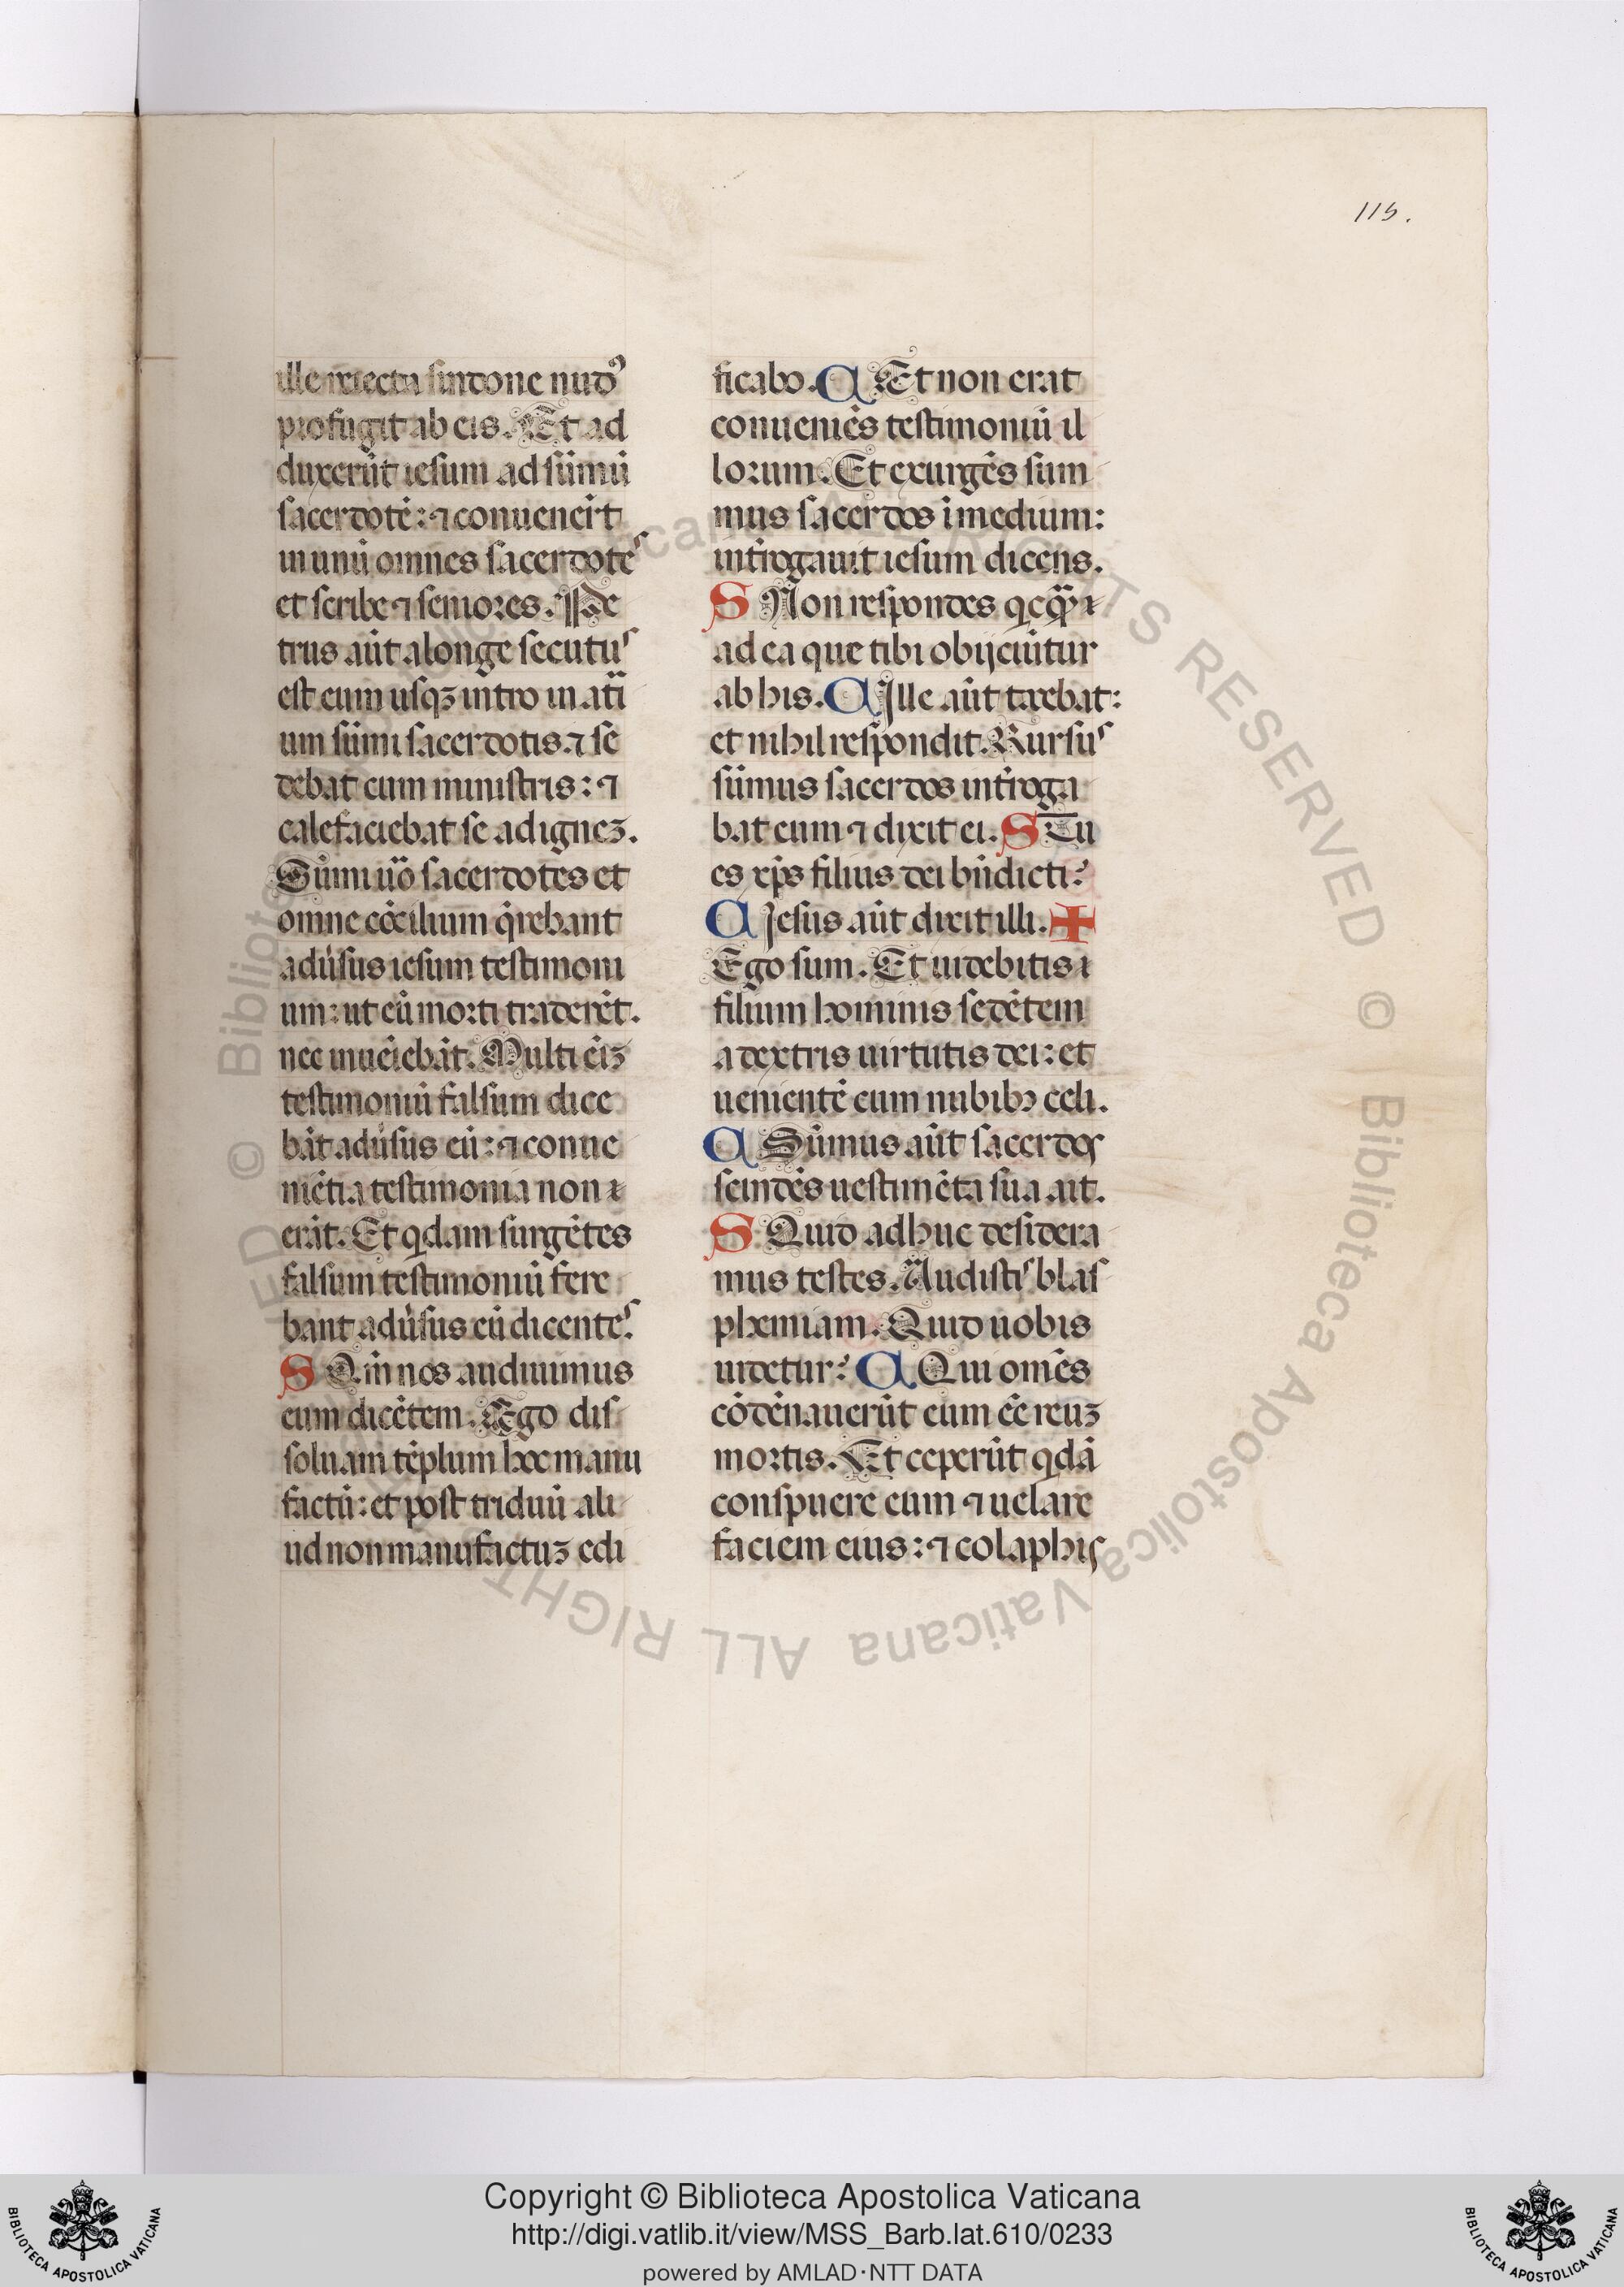 115.
ille reiecta sindone nudꝰ
profugit ab eis. Et ad
duxerūt iesum ad sūmū
sacerdotē: ⁊ conuenert̄
in unū omnes sacerdotes
et scribe ⁊ seniores. Pe
trus aūt a longe secutus
est eum usqꝫ intro in atri
um sūmi sacerdotis. ⁊ se
debat cum ministris: ⁊
calefaciebat se ad ignez.
Sūmi uō sacerdotes et
omne cōcilium q̄rebant
adūsus iesum testimoni
um: ut eū morti traderēt.
nec inueīebāt. Multi eīz
testimoniū falsum dice
bāt adūsus eū: ⁊ conue
niētia testimonia non
erāt. Et qdam surgētes
falsum testimoniū fere
bant adūsus eū dicentes.
S Qm̄ nos audiuimus
eum dicētem. Ego dis
soluam tēplum hoc manu
factū: et post triduū ali
ud non manufactuz edi
ficabo. C Et non erat
conueniēs testimoniū il
lorum. Et exurgēs sum
mus sacerdos ī medium:
inťrogauit iesum dicens.
S Non respondes qcq̄
ad ea que tibi obijciūtur
ab his. C Ille aūt tacebat:
et nihil respondit. Rursus
sūmus sacerdos inťroga
bat eum ⁊ dixit ei. S Tu
es xp̄s filius dei bn̄dicti?
C Iesus aūt dixit illi. ✠
Ego sum. Et uidebitis
filium hominis sedētem
a dextris uirtutis dei: et
uenientē cum nubibꝫ celi.
C Sūmus aūt sacerdos
scindēs uestimēta sua ait.
S Quid adhuc desidera
mus testes. Audistis blas
phemiam. Quid uobis
uidetur? C Qui omēs
cōdēnauerūt eum eē̄ reuz
mortis. Et ceperūt qdā
conspuere eum ⁊ uelare
faciem eius: ⁊ colaphis
© Biblioteca Apostolica Vaticana ALL RIGHTS RESERVED © Biblioteca Apostolica Vaticana ALL RIGHTS RESERVED
Copyright © Biblioteca Apostolica Vaticana
http://digi.vatlib.it/view/MSS_Barb.lat.610/0233
powered by AMLAD·NTT DATA
BIBLIOTECA APOSTOLICA VATICANA
BIBLIOTECA APOSTOLICA VATICANA